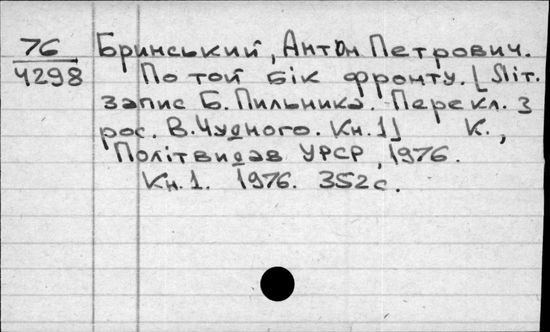 76
4298
Бринський, Антон Петрович.
По той бік фронту. [Літ.
запис Б. Пильника. Перекл. з
рос. В. Чудного. Кн. 1] К.,
Політвидав УРСР, 1976.
Кн. 1. 1976. 352 с.